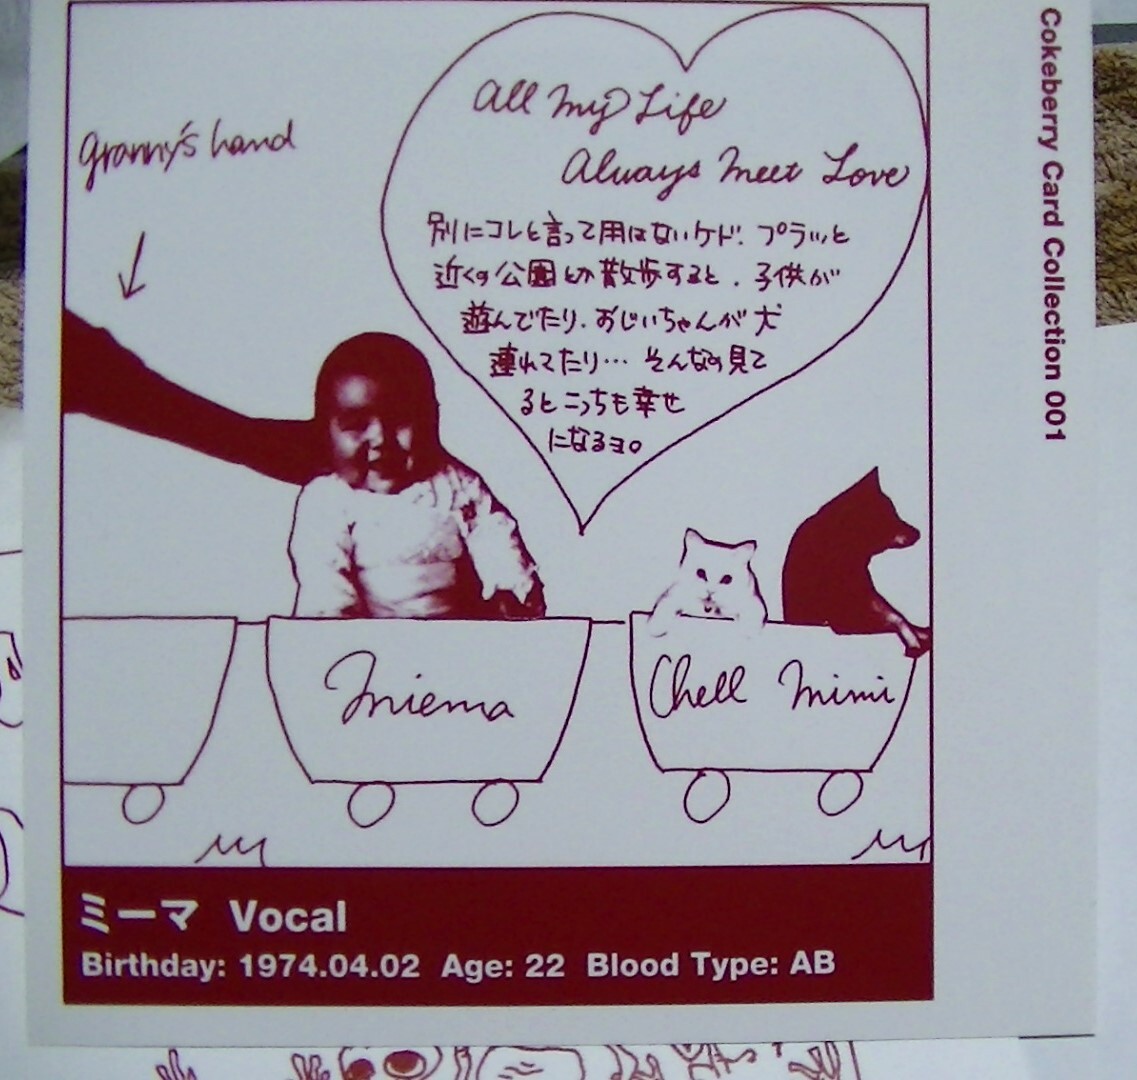 Cokeberry Card Collection 001
granny's hand
All my Life
Always meet Love
別にコレと言って用はないケド. プラッと
近くの公園とか散歩すると. 子供が
遊んでたり. おじいちゃんが犬
連れてたり… そんなの見て
るとこっちも幸せ
になるヨ。
miema
Chell mimi
ミーマ Vocal
Birthday: 1974.04.02 Age: 22 Blood Type: AB